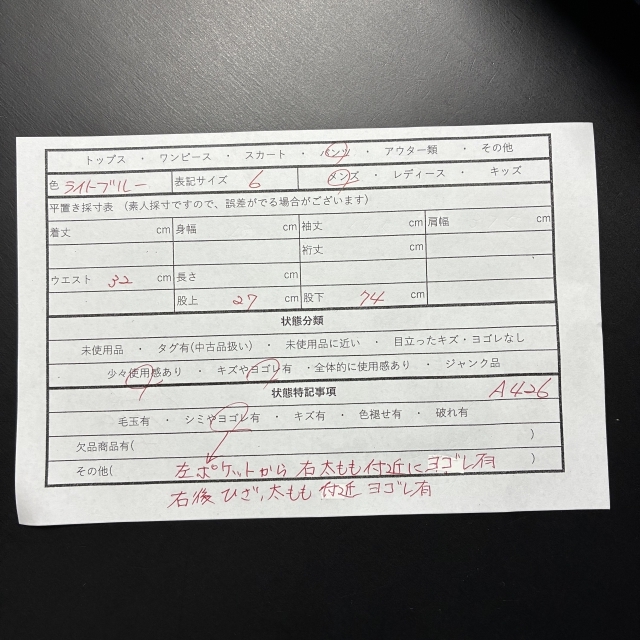 トップス ・ ワンピース ・ スカート ・ パンツ ・ アウター類 ・ その他
色 ライトブルー 表記サイズ 6 メンズ ・ レディース ・ キッズ
平置き採寸表 （素人採寸ですので、誤差がでる場合がございます）
着丈 cm 身幅 cm 袖丈 cm 肩幅 cm
裄丈 cm
ウエスト 32 cm 長さ cm
股上 27 cm 股下 74 cm
状態分類
未使用品 ・ タグ有(中古品扱い) ・ 未使用品に近い ・ 目立ったキズ・ヨゴレなし
少々使用感あり ・ キズやヨゴレ有 ・全体的に使用感あり ・ ジャンク品
状態特記事項 A426
毛玉有 ・ シミやヨゴレ有 ・ キズ有 ・ 色褪せ有 ・ 破れ有
欠品商品有( )
その他( 左ポケットから 右太もも付近にヨゴレ有 )
右後ひざ,太もも 付近 ヨゴレ有